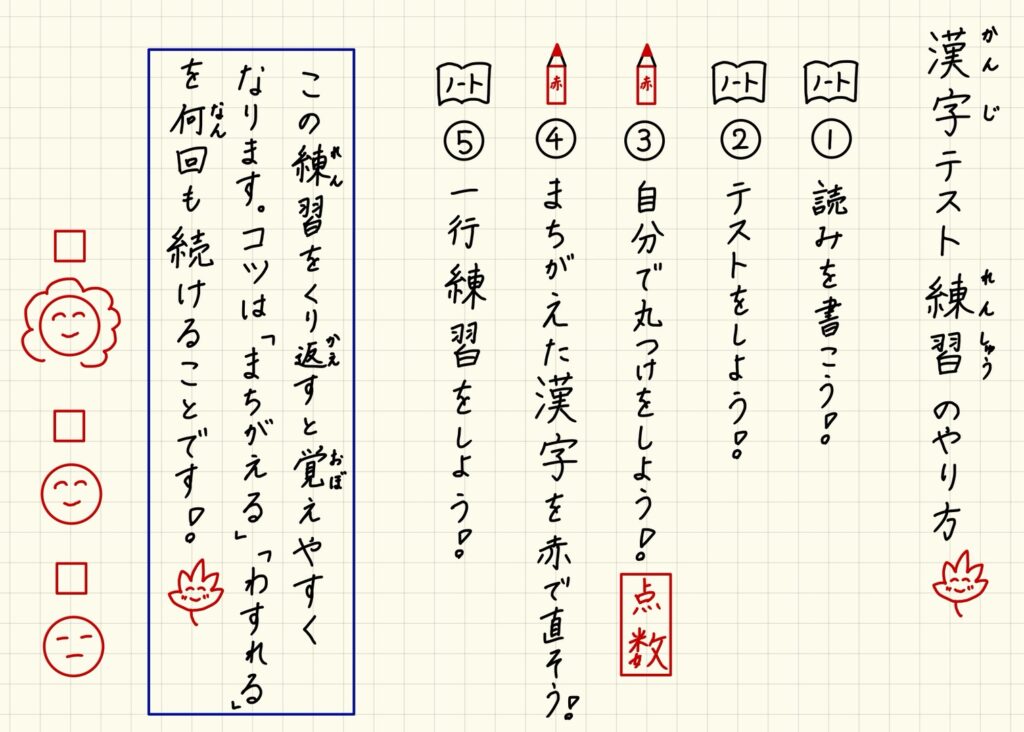 漢字テスト練習のやり方
かんじ
れんしゅう
ノート
① 読みを書こう!
ノート
② テストをしよう!
赤
③ 自分で丸つけをしよう! 点数
赤
④ まちがえた漢字を赤で直そう!
ノート
⑤ 一行練習をしよう!
この練習をくり返すと覚えやすく
れん
かえ
おぼ
なります。コツは「まちがえる」「わすれる」
を何回も続けることです!
なん